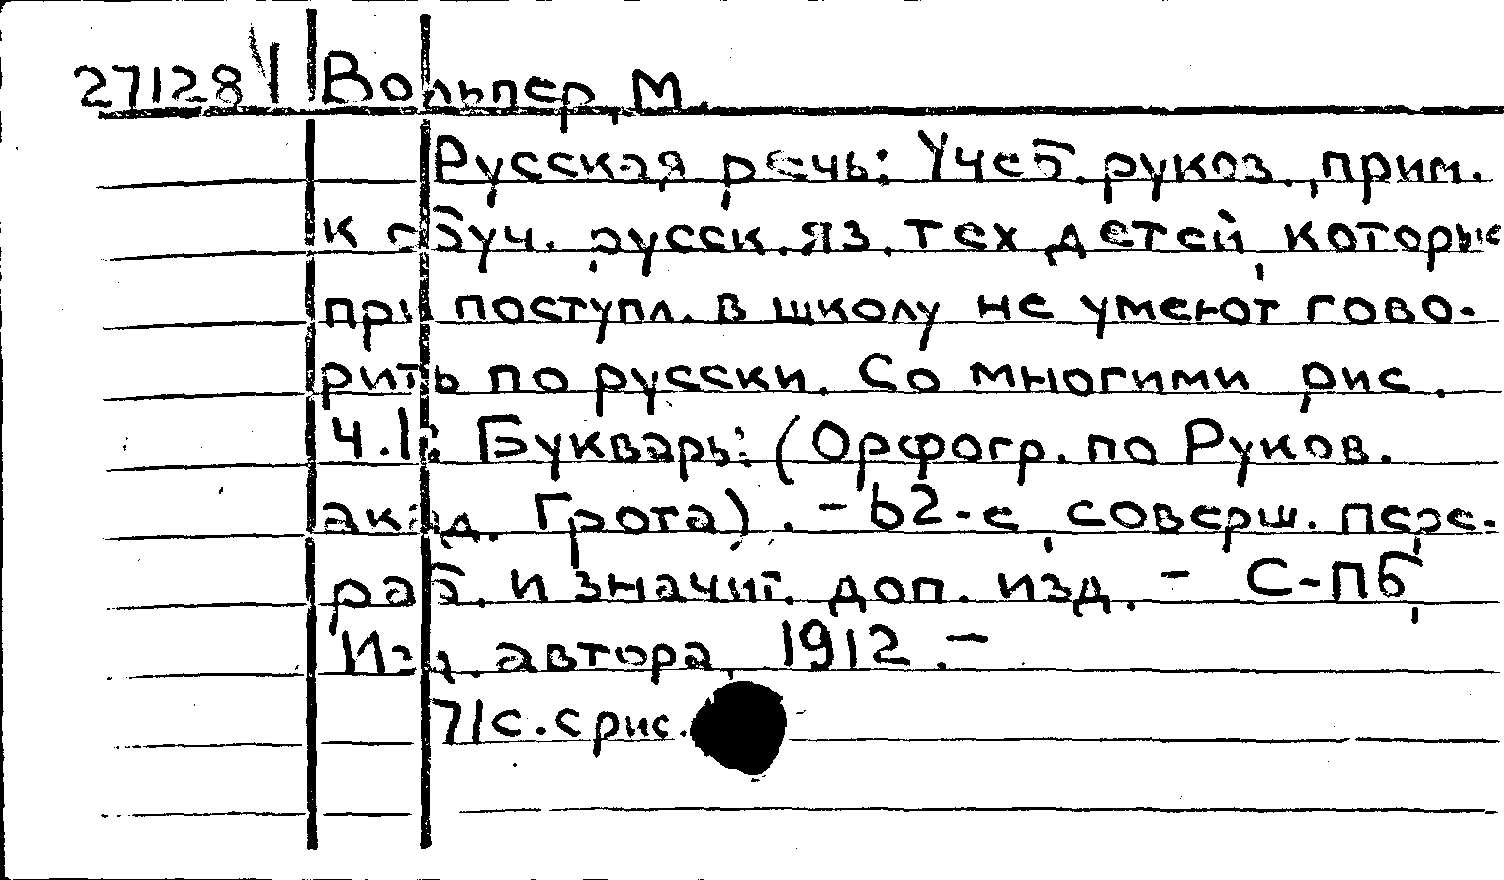 27128 Вольпер, М.
Русская речь: Учеб. руков., прим.
к обуч. русск. яз. тех детей, которые
при поступл. в школу не умеют гово-
рить по русски. Со многими рис.
Ч.1: Букварь: (Орфогр. по Руков.
акад. Грота). - 62-е, соверш. пере-
раб. и значит. доп. изд. - С-Пб,
Изд. автора, 1912. -
71с. с рис.